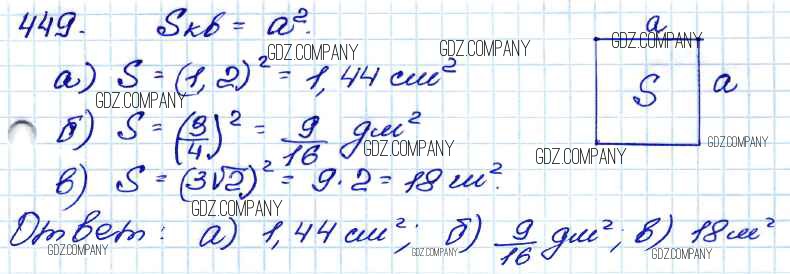 449. Sкв = a².
a
GDZ.COMPANY GDZ.COMPANY GDZ.COMPANY
а) S = (1,2)² = 1,44 см²
S a
GDZ.COMPANY
б) S = (3/4)² = 9/16 дм²
GDZ.COMPANY GDZ.COMPANY GDZ.COMPANY
в) S = (3√2)² = 9·2 = 18 м².
GDZ.COMPANY
Ответ: а) 1,44 см²; б) 9/16 дм²; в) 18 м²
GDZ.COMPANY GDZ.COMPANY GDZ.COMPANY